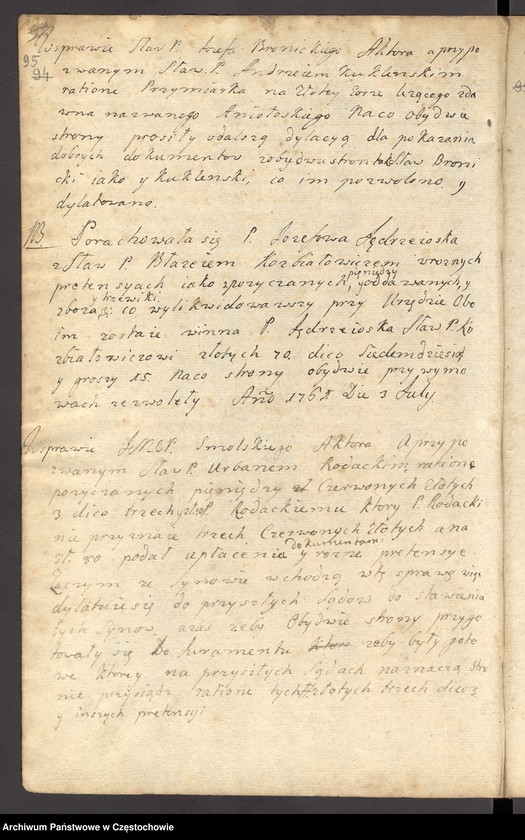 95
94
Wsprawie Sław P. Iozefa Bronickiego Aktora a przypo
zwanym Sław. P. Andrzeiem Kuklenskim
ratione Przymiarka na Złotey Gorze lezącego zda
wna nazwanego Aniołoskiego Naco obydwie
strony prosiły odalszą dylacyą dla pokazania
dobrych dokumentow zobydwu stron tak Sław Broni
cki iako y Kuklenski, co im pozwolono y
dylatowano.
NB Porachowała się P. Iozefowa Jędrzeioska
z Sław P. Błazeiem Kozbiałowiczem wroznych
pretensyach iako pozyczanych pięniędzy y oddawanych y
zboza y trzewiki: co wylikwidowawszy przy Urzędzie Obo
im zostaie winna P. Jędrzeioska Sław P. Ko
zbiałowiczowi złotych 70. dico Siedemdziesiąt
y groszy 15. Naco strony obydwie przy wymo
wach zezwoleły Anō 1761 Die 3 July.
Wsprawie JMCP. Smolskiego Aktora Aprzypo
zwanym Sław P. Urbanem Rodackim, ratione
pozyczanych pięniędzy Czerwonych Złotych
3. dico trzech P. Rodackiemu ktory P. Rodacki
nie przyznaie trzech Czerwonych Złotych a na
zł. 80 podał upłacenia dokumentami y rozne pretensye
Zaczym ze Synowie wchodzą wtę sprawę więc
dylatuie się do przyszłych Sądow do stawienia
tych Synow, azas zeby Obydwie strony przygo
towały się Do Iuramentu zeby były goto
we ktorey na przyszłych Sądach naznaczą Stro
nie przysiądz ratione tych złotych trzech dico 3
y inszych pretensyi
Archiwum Państwowe w Częstochowie